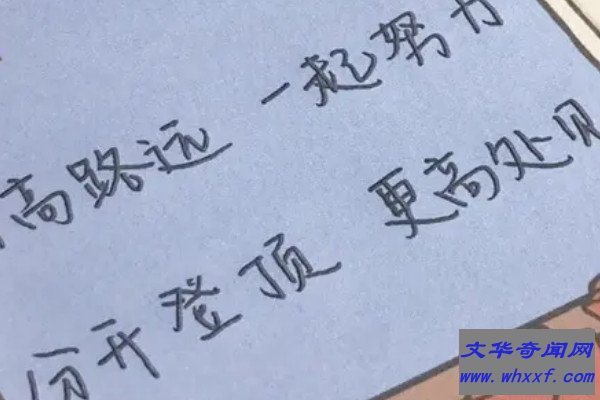 高路远 一起努力
分开登顶 更高处见
文华奇闻网
www.whxxf.com